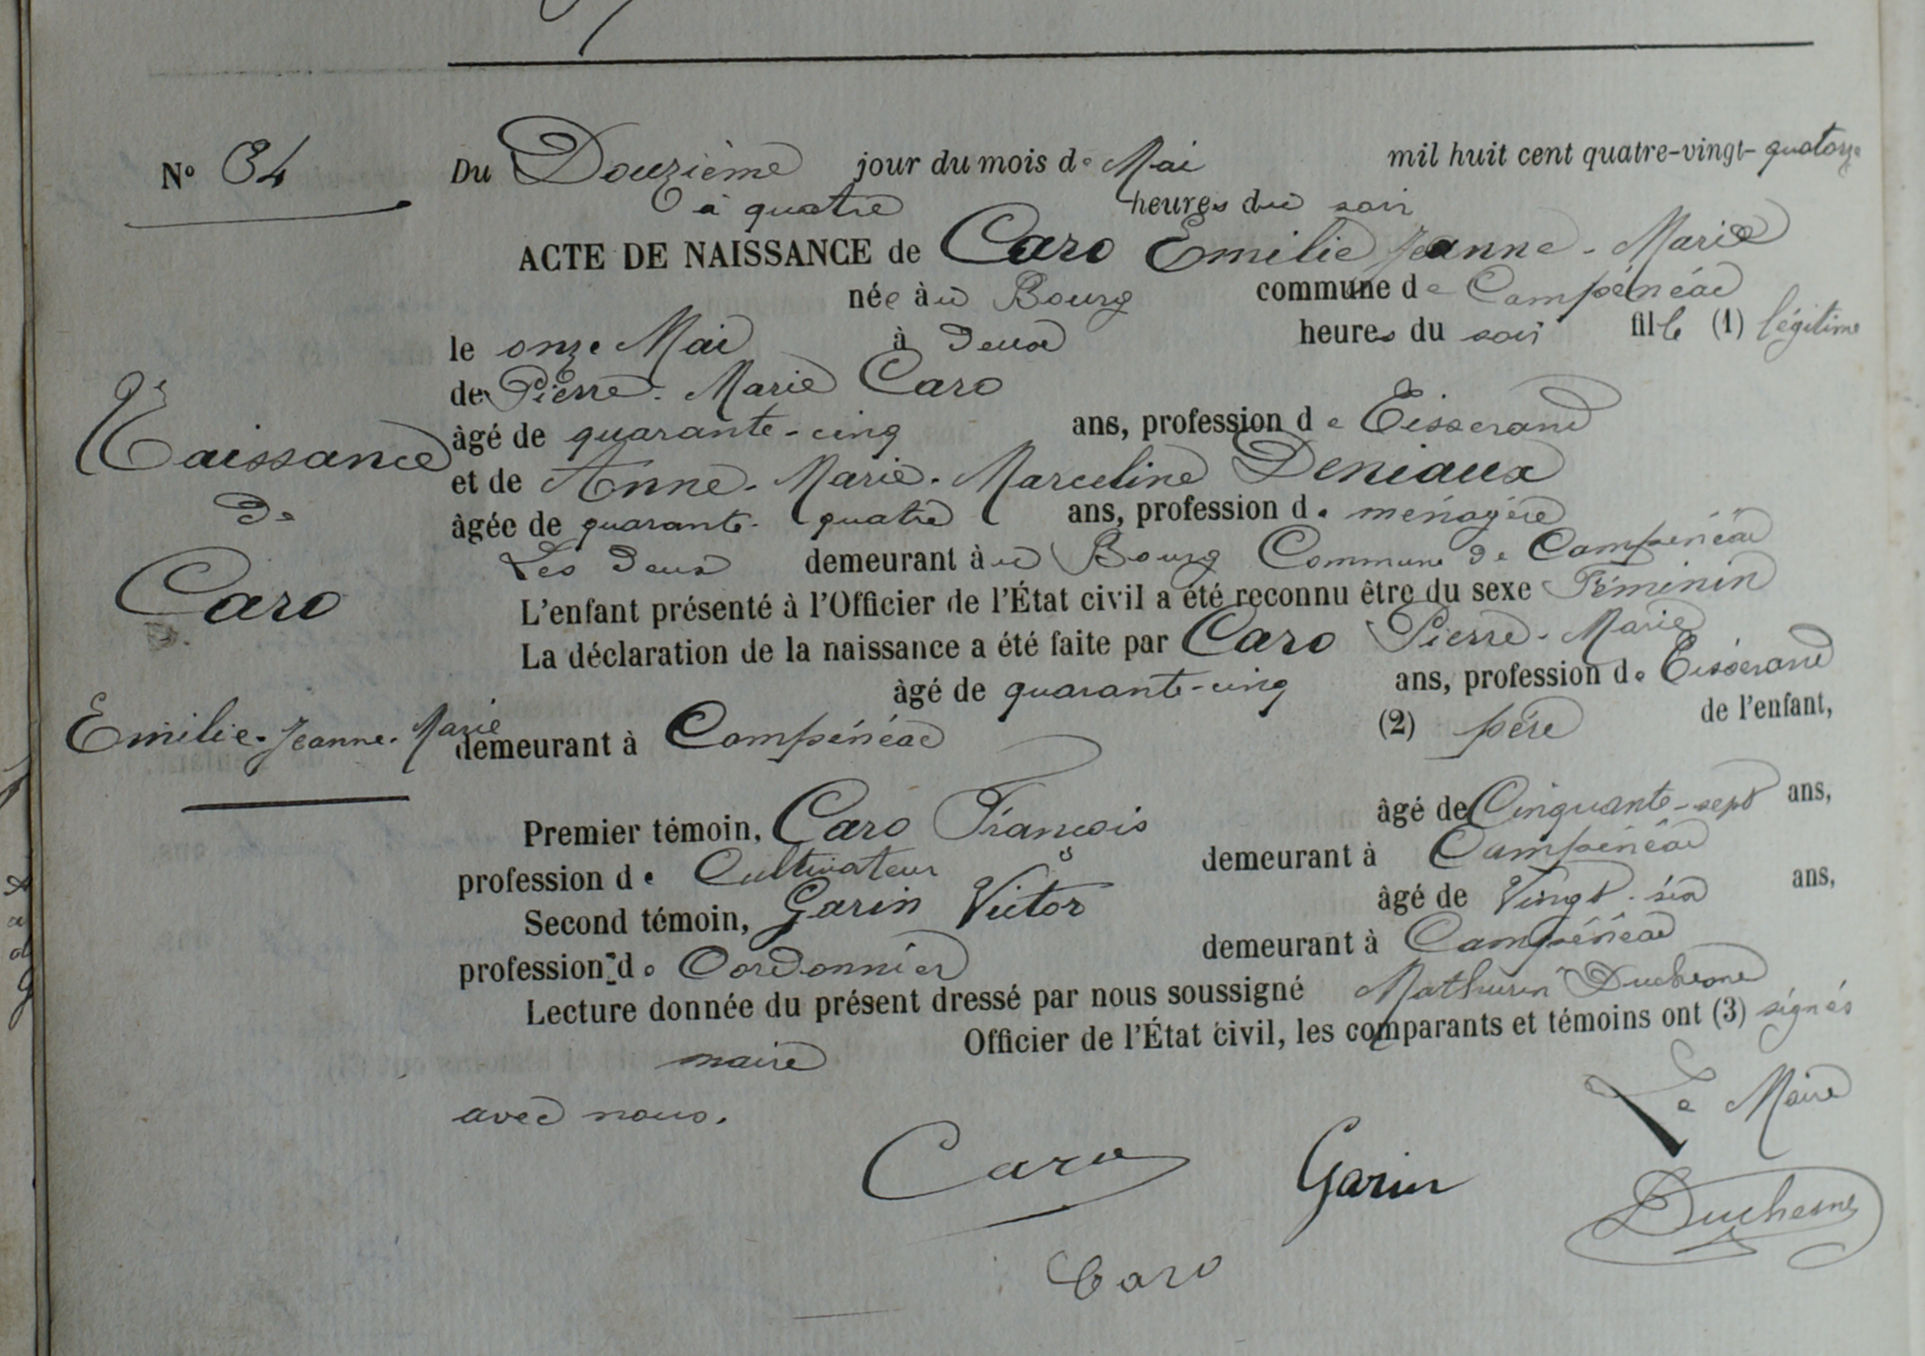 N° 34
Du Douzième jour du mois de Mai mil huit cent quatre-vingt-quatorze
à quatre heures du soir
ACTE DE NAISSANCE de Caro Emilie Jeanne-Marie
née àu Bourg commune de Campénéac
le onze Mai à deux heures du soir fille (1) légitime
de Pierre-Marie Caro
âgé de quarante-cinq ans, profession de Tisserand
et de Anne-Marie-Marceline Deniaux
âgée de quarante-quatre ans, profession de ménagère
Les deux demeurant àu Bourg Commune de Campénéac
L'enfant présenté à l'Officier de l'État civil a été reconnu être du sexe Féminin
La déclaration de la naissance a été faite par Caro Pierre-Marie
âgé de quarante-cinq ans, profession de Tisserand
demeurant à Campénéac (2) père de l'enfant,
Premier témoin, Caro François âgé de Cinquante-sept ans,
profession de Cultivateur demeurant à Campénéac
Second témoin, Garin Victor âgé de Vingt-six ans,
profession de Cordonnier demeurant à Campénéac
Lecture donnée du présent dressé par nous soussigné Mathurin Duchesne
maire Officier de l'État civil, les comparants et témoins ont (3) signés
avec nous.
Naissance
de
Caro
Emilie-Jeanne-Marie
Le Maire
Caro Garin Duchesne
Caro